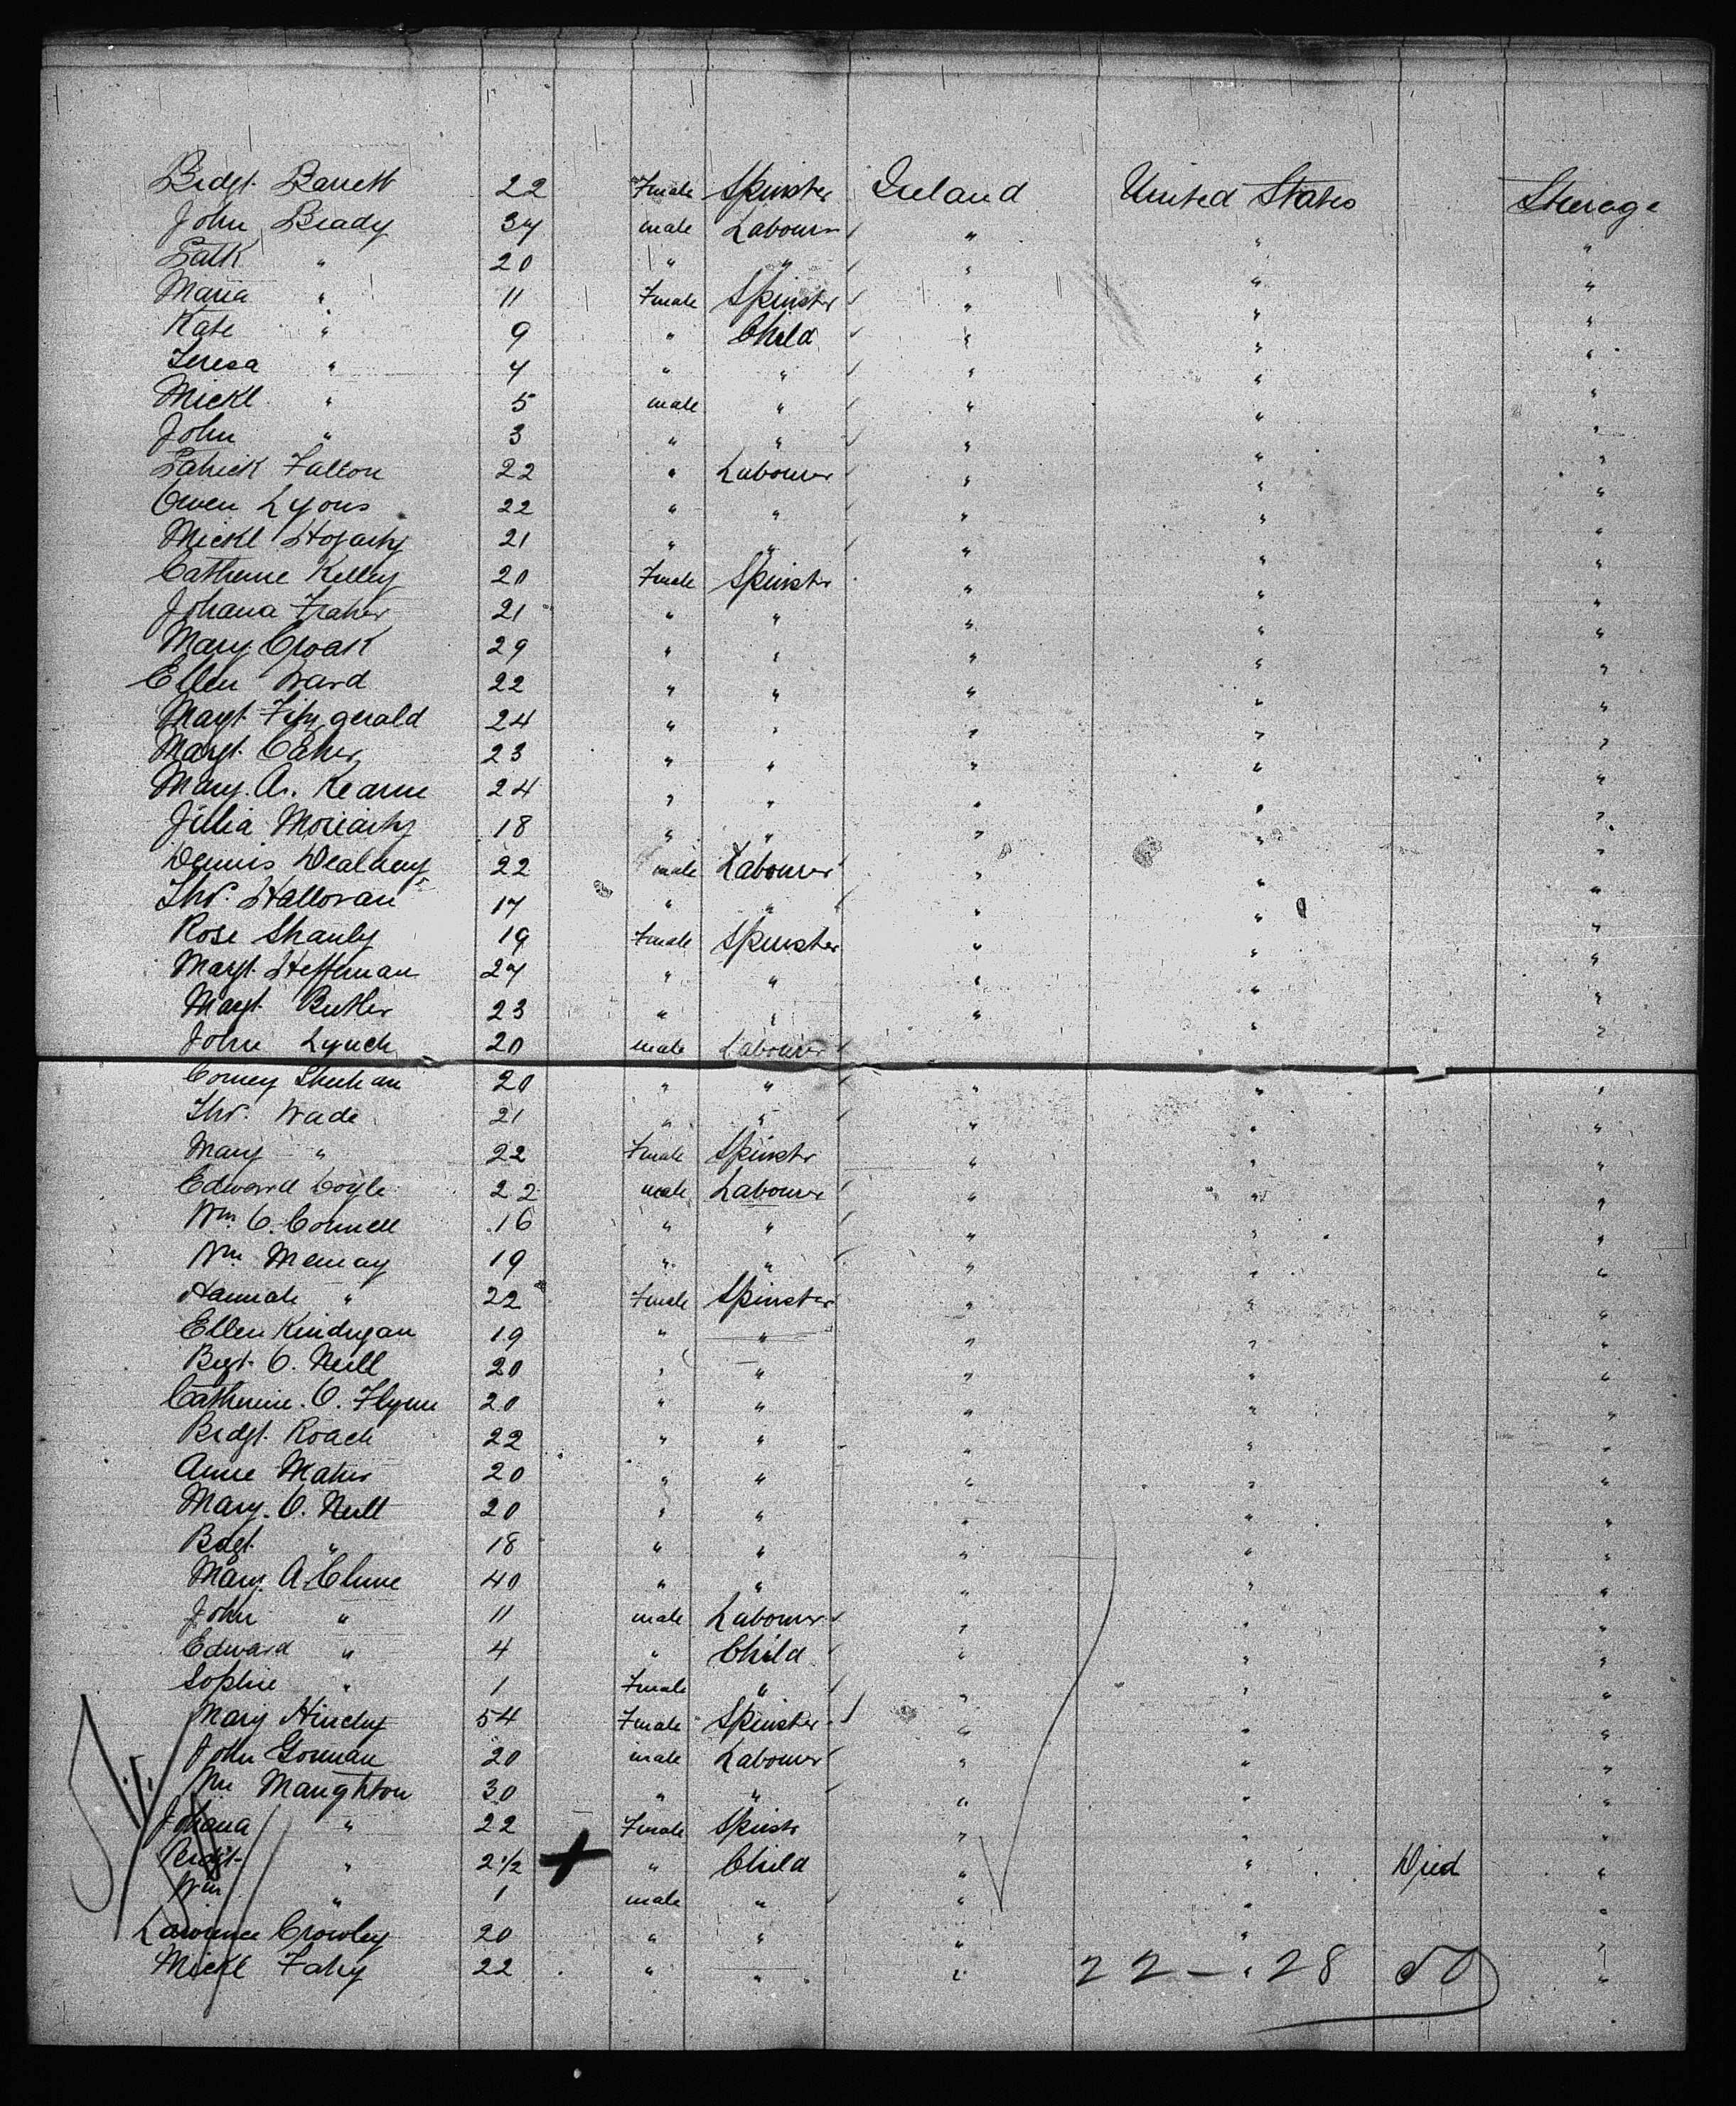 Bridgt. Barrett 22 Female Spinster Ireland United States Steerage
John Brady 34 male Labourer " " "
Patk " 20 " " " " "
Maria " 11 Female Spinster " " "
Kate " 9 " Child " " "
Teresa " 7 " " " " "
Mickl " 5 male " " " "
John " 3 " " " " "
Patrick Fallon 22 " Labourer " " "
Owen Lyons 22 " " " " "
Mickl Hogarty 21 " " " " "
Catherine Kelley 20 Female Spinster " " "
Johana Fraher 21 " " " " "
Mary Croak 29 " " " " "
Ellen Ward 22 " " " " "
Margt. Fitzgerald 24 " " " " "
Margt. Caher 23 " " " " "
Mary. A. Kearne 24 " " " " "
Julia Moriarty 18 " " " " "
Dennis Dealney 22 male Labourer " " "
Thos. Halloran 17 " " " " "
Rose Shanly 19 Female Spinster " " "
Margt. Heffernan 27 " " " " "
Margt Butler 23 " " " " "
John Lynch 20 male Labourer
Corney Sheehan 20 " " " " "
Thos. Wade 21 " " " " "
Mary " 22 Female Spinster " " "
Edward Doyle 22 male Labourer " " "
Wm. O. Connell 16 " " " " "
Wm. 19 " " " " "
Hannah " 22 Female Spinster " " "
Ellen Kindregan 19 " " " " "
Brgt. O. Neill 20 " " " " "
Catherine. O. Flynn 20 " " " " "
Bridgt. Roach 22 " " " " "
Anne Maher 20 " " " " "
Mary. O. Neill 20 " " " " "
Bdgt. " 18 " " " " "
Mary. A. Clune 40 " " " " "
John " 11 male Labourer " " "
Edward " 4 " Child " " "
Sophie " 1 Female " " " "
Mary Hinchy 54 Female Spinster " " "
John Gorman 20 male Labourer " " "
Wm Maughton 30 " " " " "
Johana " 22 Female Spinstr " " "
Bridgt. " 2 1/2 + " Child " " Died "
Wm " 1 male " " " "
Lawrence Crowley 20 " " " " "
Mickl Fahy 22 " " " 22 — " 28 50 "